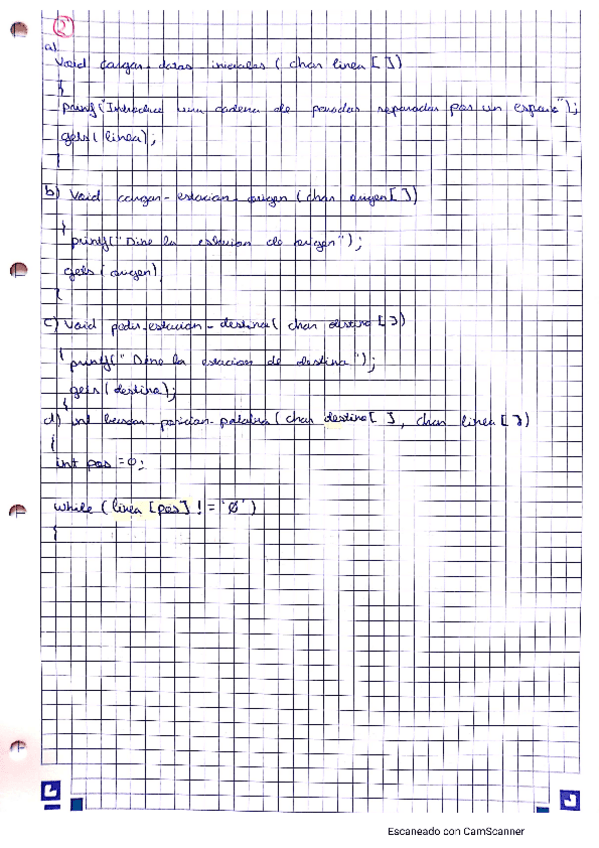 2
a)
Void cargar_datos_iniciales ( char linea [ ] )
{
printf("Introduce una cadena de paradas separadas por un espacio");
gets( linea);
}
b) Void cargar_estacion_origen ( char origen[ ] )
{
printf("Dime la estacion de origen");
gets(origen)
}
c) Void pedir_estacion_destino( char destino [ ] )
{ printf("Dime la estacion de destino");
gets(destino);
}
d) int buscar_posicion_palabra ( char destino[ ], char linea [ ] )
{
int pos = 0;
while ( linea [pos] != '\0' )
{
Escaneado con CamScanner